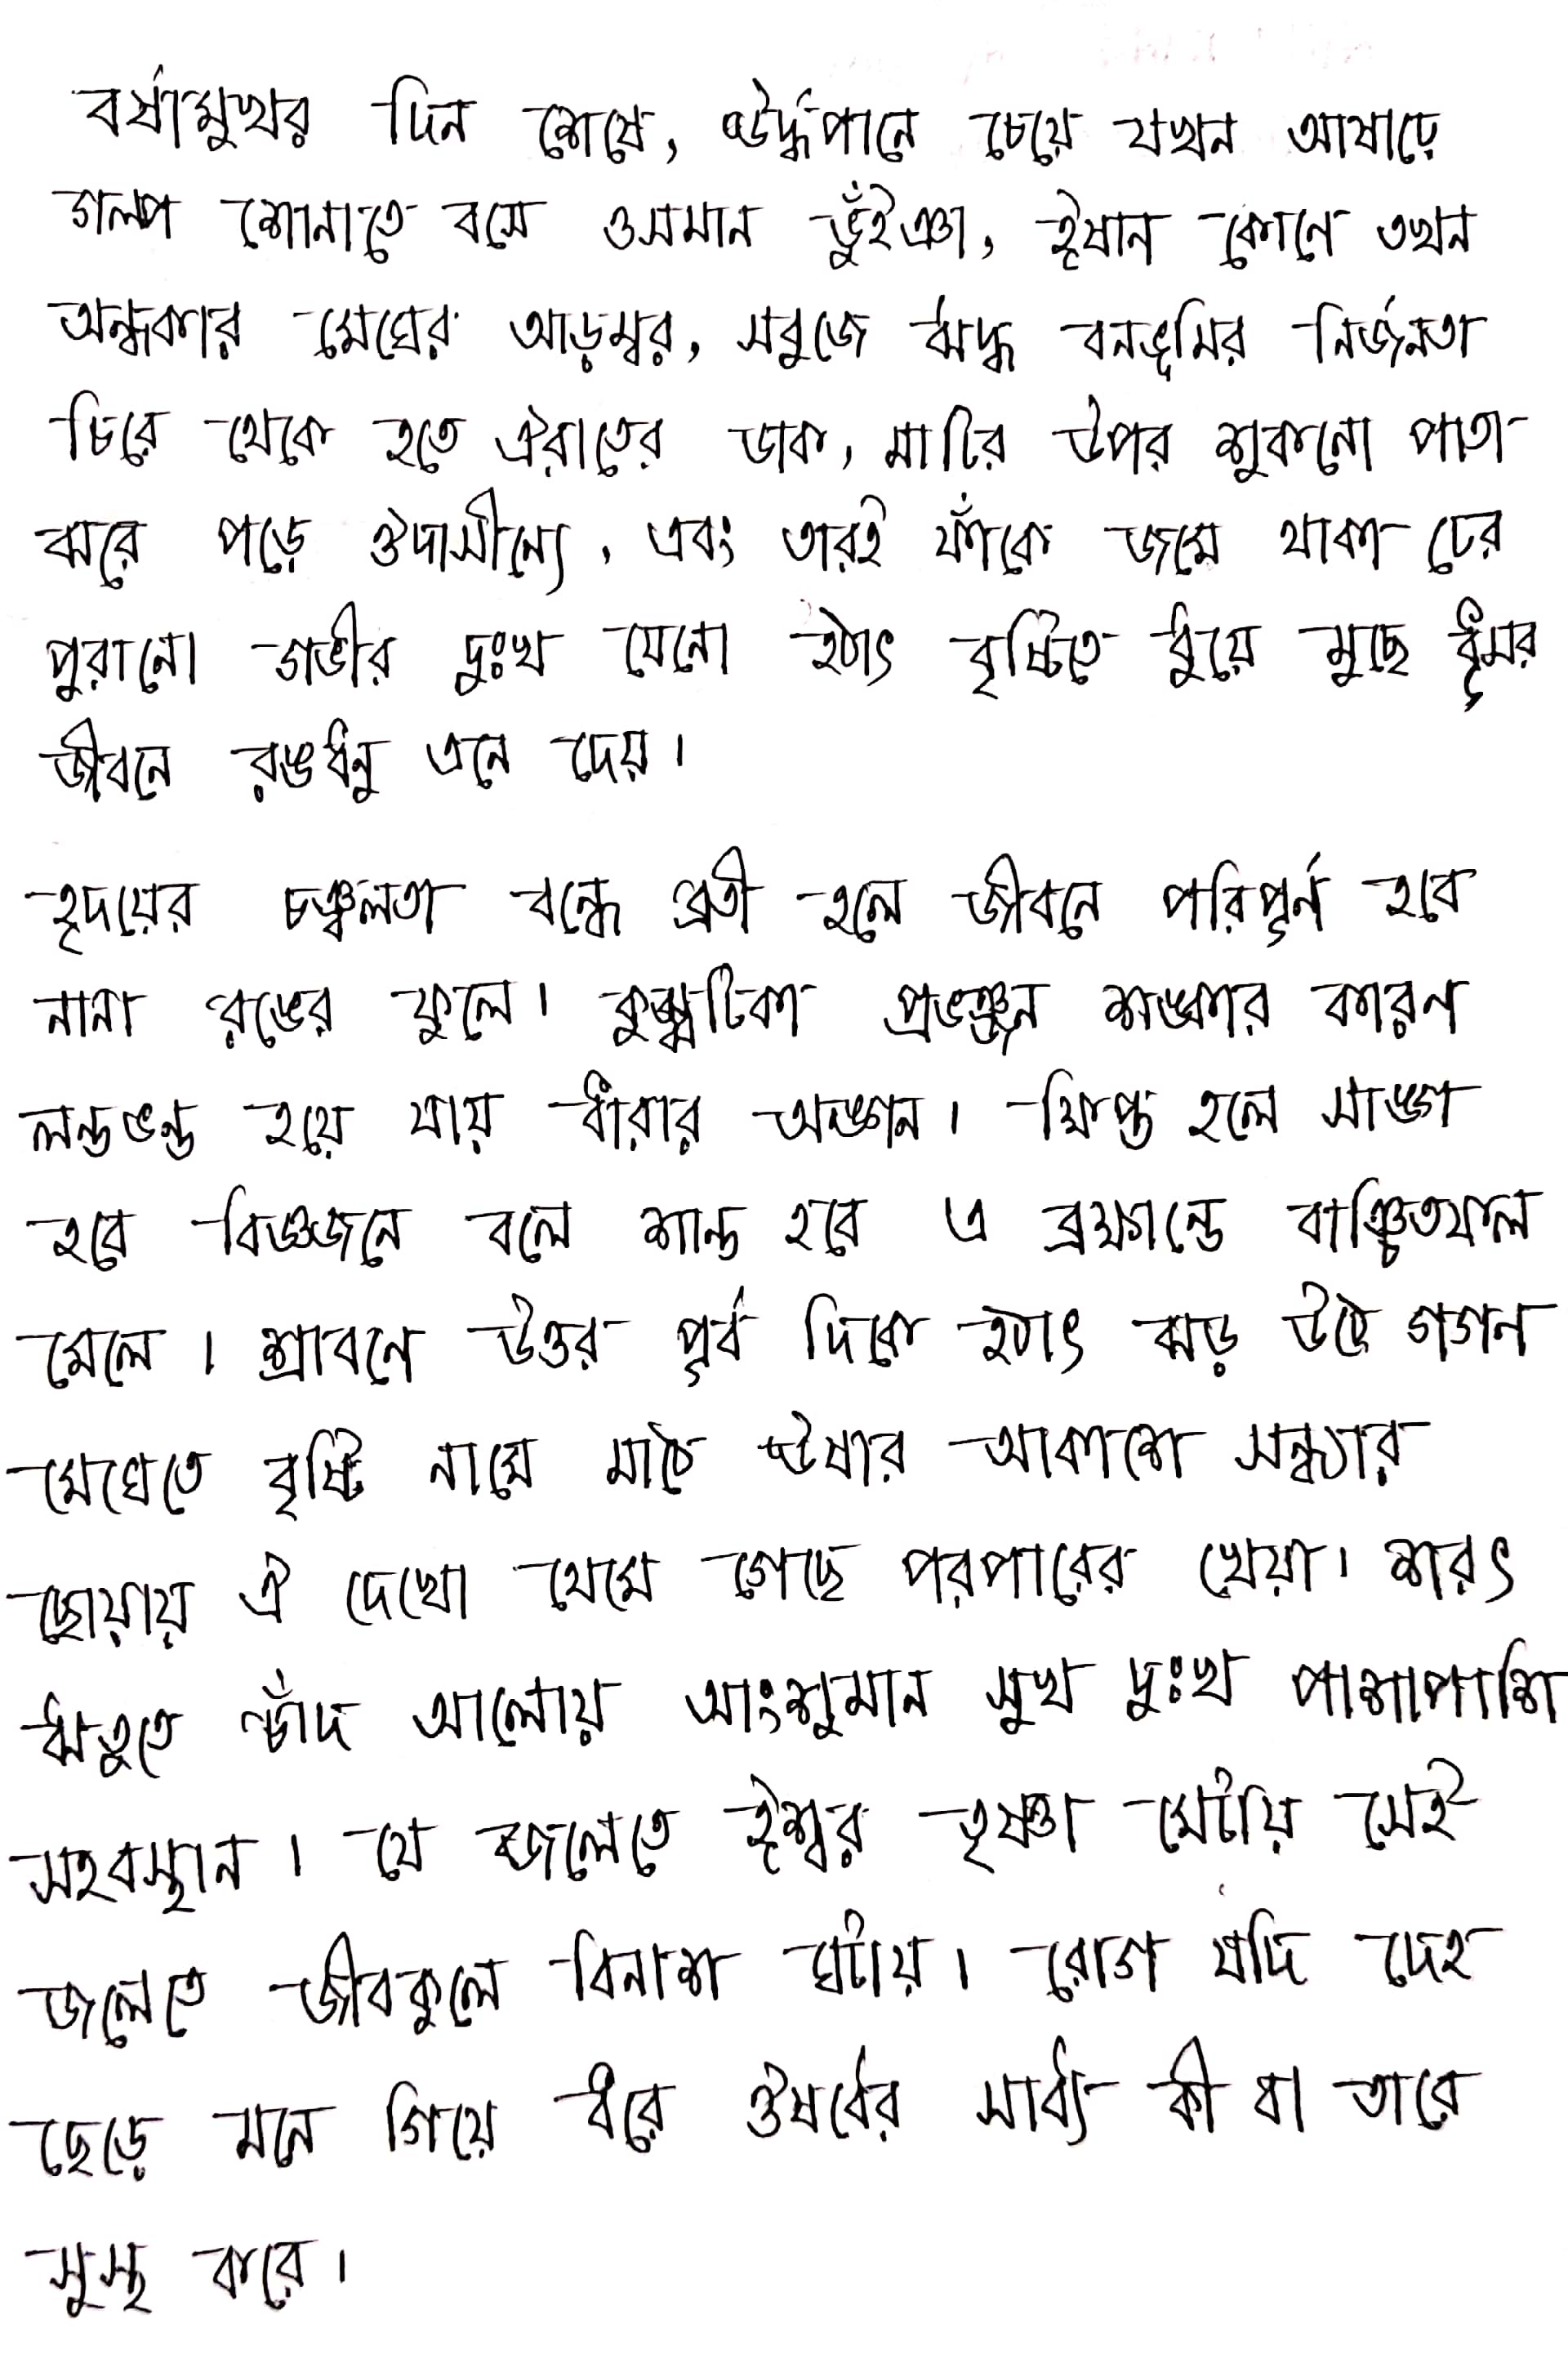 বর্ষামুখর দিন শেষে, ঊর্দ্ধপানে চেয়ে যখন আষাঢ়ে
গল্প শোনাতে বসে ওসমান ভুঁইঞা, ঈষান কোনে তখন
অন্ধকার মেঘের আড়ম্বর, সবুজে ঋদ্ধ বনভূমির নির্জনতা
চিরে থেকে হতে ঐরাতের ডাক, মাটির উপর শুকানো পাতা
ঝরে পড়ে ঔদাসীন্যে, এবং তারই ফাঁকে জমে থাকা ঢের
পুরানো গভীর দুঃখ যেনো হঠাৎ বৃষ্টিতে ধুয়ে মুছে ধূসর
জীবনে রঙধনু এনে দেয়।
হৃদয়ের চঞ্চলতা বন্ধে ব্রতী হলে জীবনে পরিপূর্ন হবে
নানা রঙের ফুলে। কুজ্ঝটিকা প্রভঞ্জন শঙ্কার কারণ
লন্ডভন্ড হয়ে যায় ধারার অঙ্গন। ক্ষিপ্ত হলে সাঙ্গ
হবে বিজ্ঞজনে বলে শান্ত হবে এ ব্রহ্মান্ডে বাঞ্চিতফল
মেলে। শ্রাবনে উত্তর পূর্ব দিকে হঠাৎ ঝড় উঠে গগন
মেঘেতে বৃষ্টি নামে মাঠে ঊষার আকাশে সন্ধ্যার
ছোয়ায় ঐ দেখো থেমে গেছে পরপারের খেয়া। শরৎ
ঋতুতে চাঁদ আলোয় আংশুমান সুখ দুঃখ পাশাপাশি
সহবস্থান। যে জলেতে ঈশ্বর তৃষ্ণা মেটায় সেই
জলেতে জীবকুলে বিনাশ ঘটায়। রোগ যদি দেহ
ছেড়ে মনে গিয়ে ধরে ঔষধের সাধ্য কী বা তারে
সুস্থ করে।